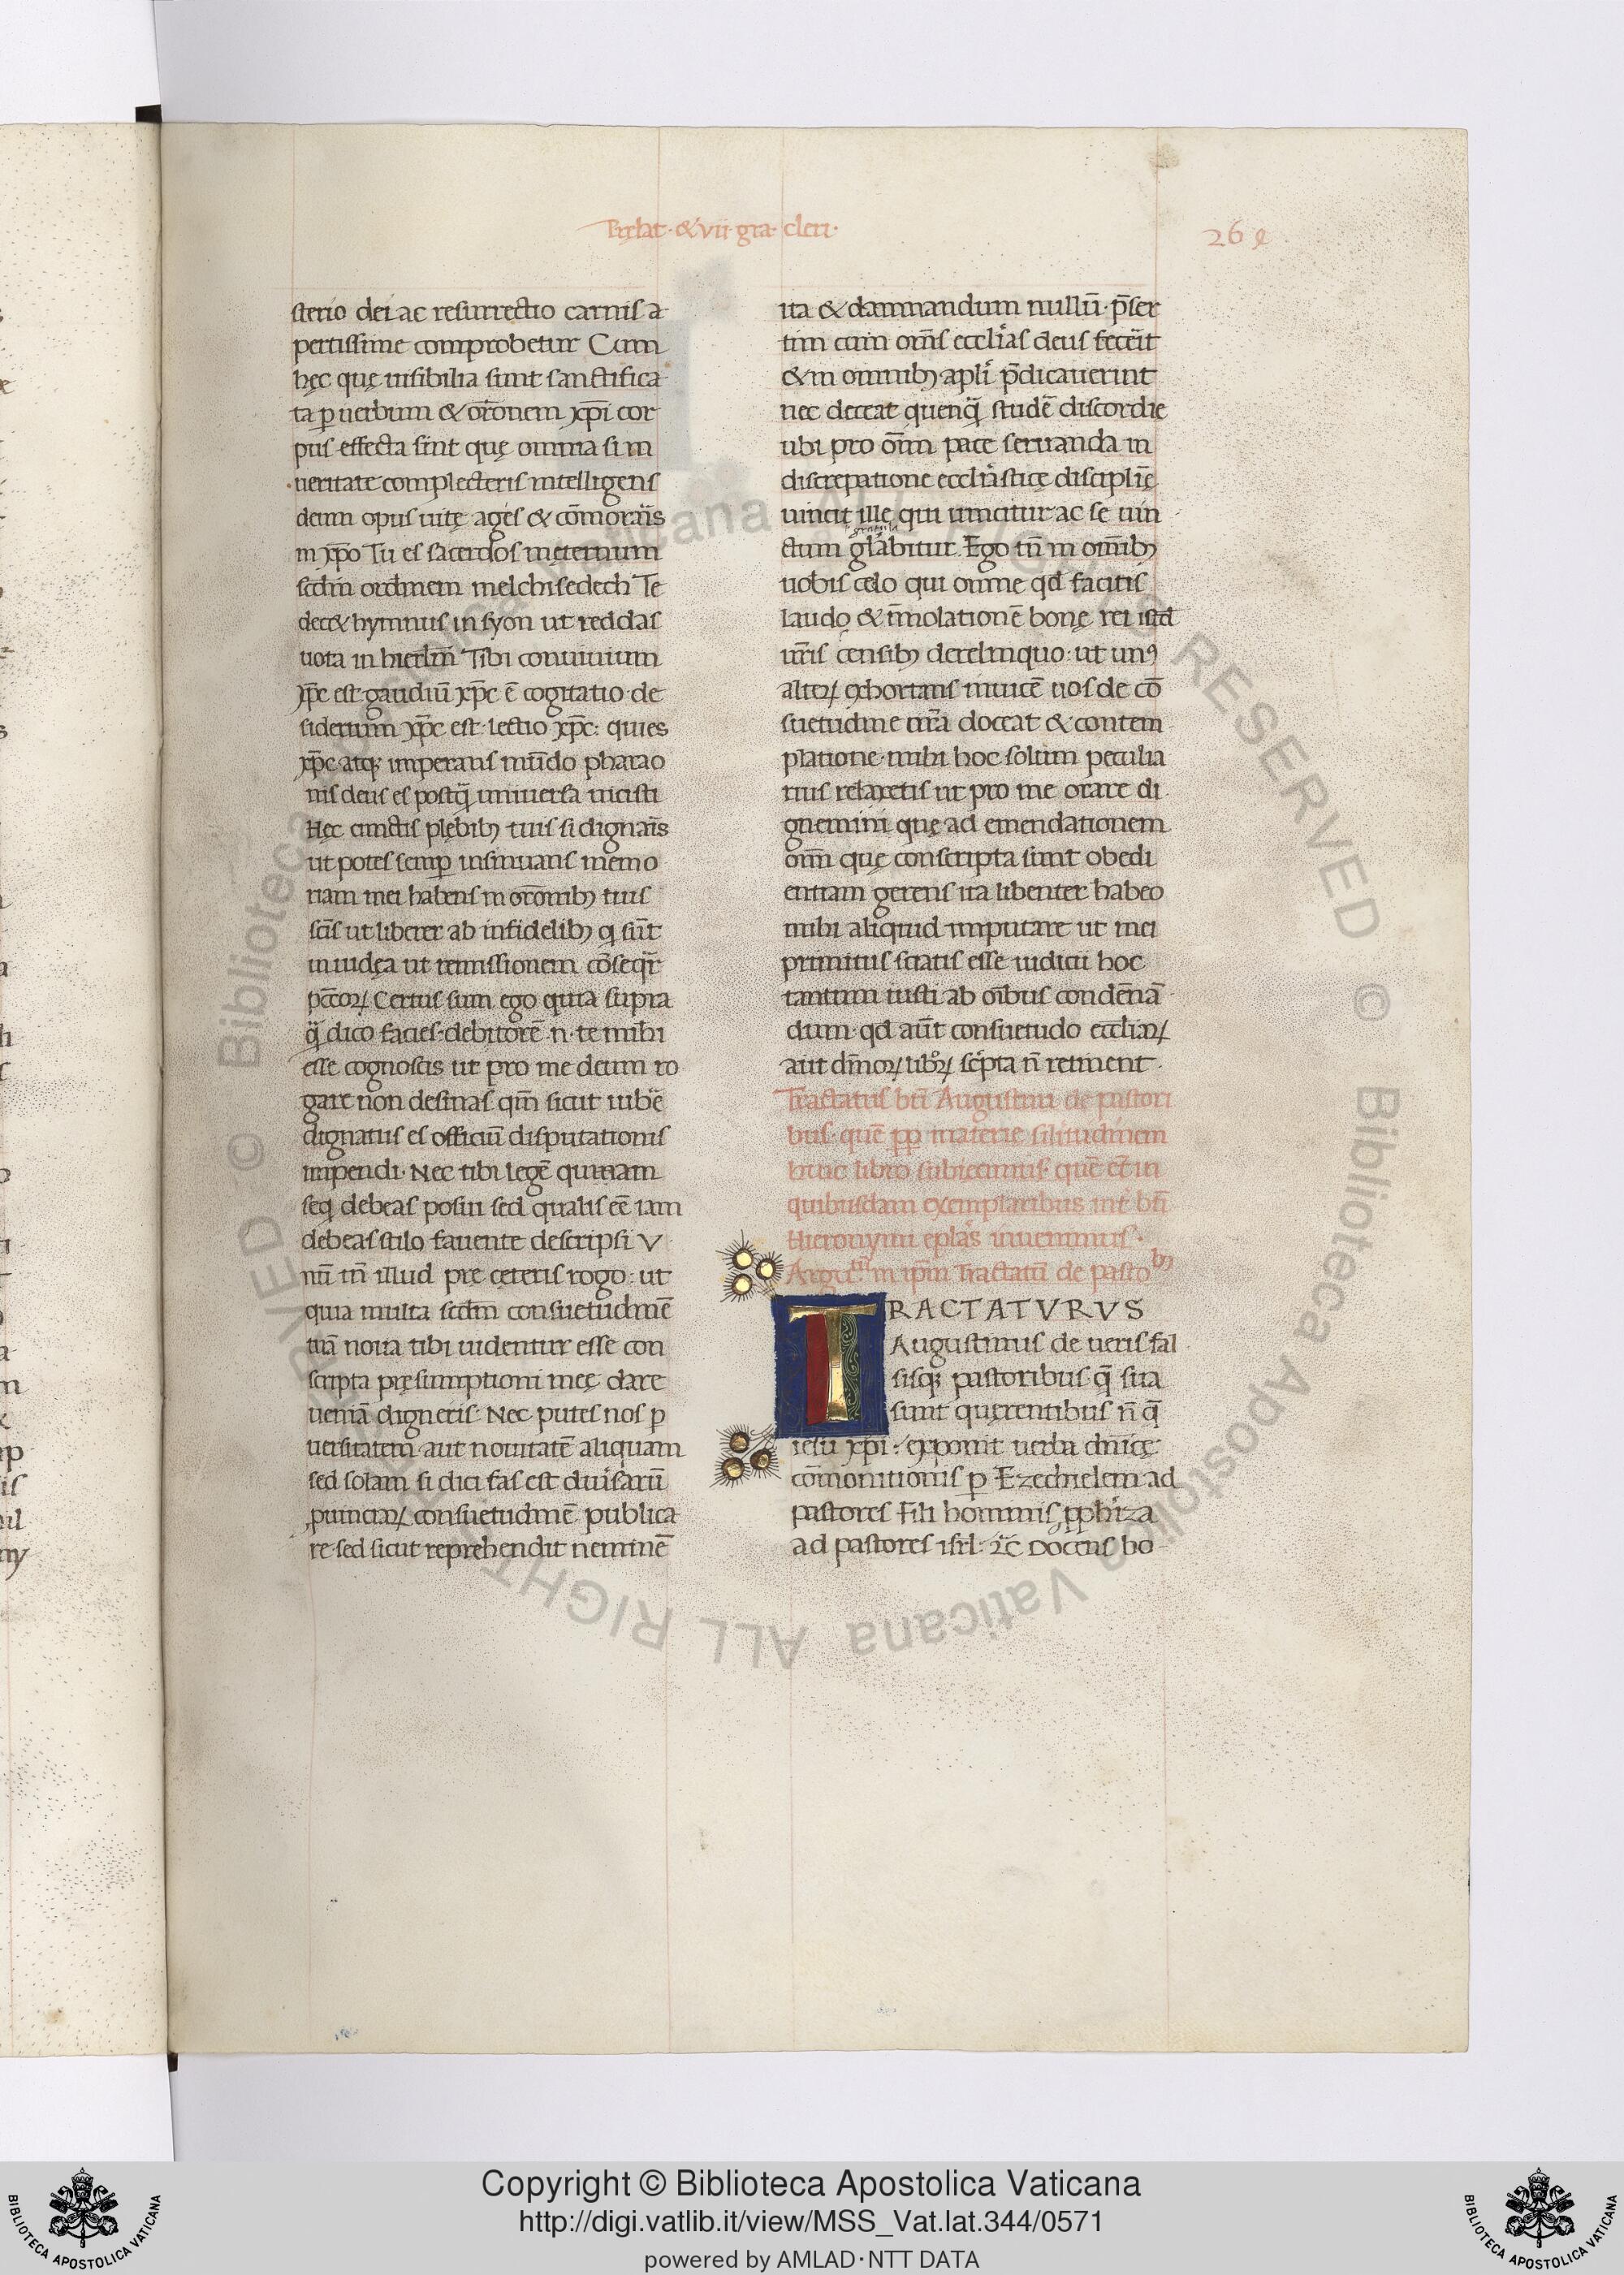 Prelat· &vii·gra· cleri·
sterio dei ac resurrectio carnis a
pertissime comprobetur Cum
hęc quę uisibilia sunt sanctifica
ta ꝑ uerbum & orōnem xp̄i cor
pus effecta sint quę omnia si in
ueritate complecteris intelligens
deum opus uitę ages & cōmorār̄is
in xp̄o Tu es sacerdos in ęternum
scd̄m ordinem melchisedech Te
dec& hymnus in syon ut reddas
uota in hierl̄m Tibi conuiuium
xp̄c est·gaudiū xp̄c ē cogitatio·de
siderium xp̄c est·lectio xp̄c: quies
xp̄c atqꝫ imperans mūdo pharao
nis deus es postq̄ uniuersa uicisti
Hęc cunctis plębibꝫ tuis si dignar̄is
ut potes semꝑ insinuans memo
riam mei habens in orōnibꝫ tuis
scīs ut liberer ab infidelibꝫ q sūt
in iudęa ut remissionem cōseqr̄
pccōꝝ Certus sum ego quia supra
q̄ dico facies·debitorē·n·te mihi
esse cognoscis ut pro me deum ro
gare non desinas qm̄ sicut iubē
dignatus es officiū disputationis
impendi· Nec tibi legē quinam
seq debeas posui sed qualis eē iam
debeas stilo fauente descripsi V
nū tn̄ illud pre ęteris rogo: ut
quia multa scd̄m consuetudinē
tuā noua tibi uidentur esse con
scripta pręsumptioni męę dare
ueniā digneris· Nec putes nos ꝑ
uersitatem·aut nouitatē aliquam
sed solam si dici fas est diuīsarū
ꝓuinciaꝝ consuetudinē publica
re·sed sicut reprehendit neminē
26
ita & damnandum nullū· p̄ser
tim cum om̄s eccl̄ias deus fecer̄it
& in omnibꝫ apl̄i p̄dicauerint
nec deceat quenq̄ studē discordie
ubi pro om̄i pace seruanda in
discrepatione eccl̄iasticę discipl̄ię
uincit ille qui uincitur ac se uin
ctum gl̄abitur. Ego tn̄ in om̄ibꝫ
uobis celo qui omne qd̄ facitis
laudo & īmolationē bonę rei istd̄
ur̄is censibꝫ derelinquo: ut unꝰ
alteꝝ exhortans inuicē uos de cō
suetudine ur̄a doceat & contem
platione·mihi hoc solum peculia
rius relaxetis ut pro me orare di
gnemini quę ad emendationem
om̄i quę conscripta sunt obedi
entiam gerens ita libenter habeo
mihi aliquid imputare ut mei
primitus sciatis esse iudicii hoc
tantum iusti ab oībus condēnā
dum·qd̄ aūt consuetudo eccl̄iaꝝ
aut dīuinoꝝ libroꝝ sc̄pta n̄ retinent·
Tractatus btī Augustini de pastori
bus· quē ꝓp materie sīlitudinem
hunc libro subiecimus· quē et̄ in
quibusdam exemplaribus int̄ btī
Hieronymi ep̄las inuenimus·
Argum̄ in ip̄m Tractatū de pastoꝫ
TRACTATVRVS
Augustinus de ueris fal
sisqꝫ pastoribus q̄ sua
sunt quęrentibus n̄ q̄
iesu xp̄i: exponit uerba dn̄icę
cōmonitionis ꝑ Ezechielem ad
pastores Fili hominis ꝓph̄iza
ad pastores isr̄l· ⁊c̄ Docens bo
© Biblioteca Apostolica Vaticana ALL RIGHTS RESERVED
Copyright © Biblioteca Apostolica Vaticana
http://digi.vatlib.it/view/MSS_Vat.lat.344/0571
powered by AMLAD·NTT DATA
BIBLIOTECA APOSTOLICA VATICANA
BIBLIOTECA APOSTOLICA VATICANA